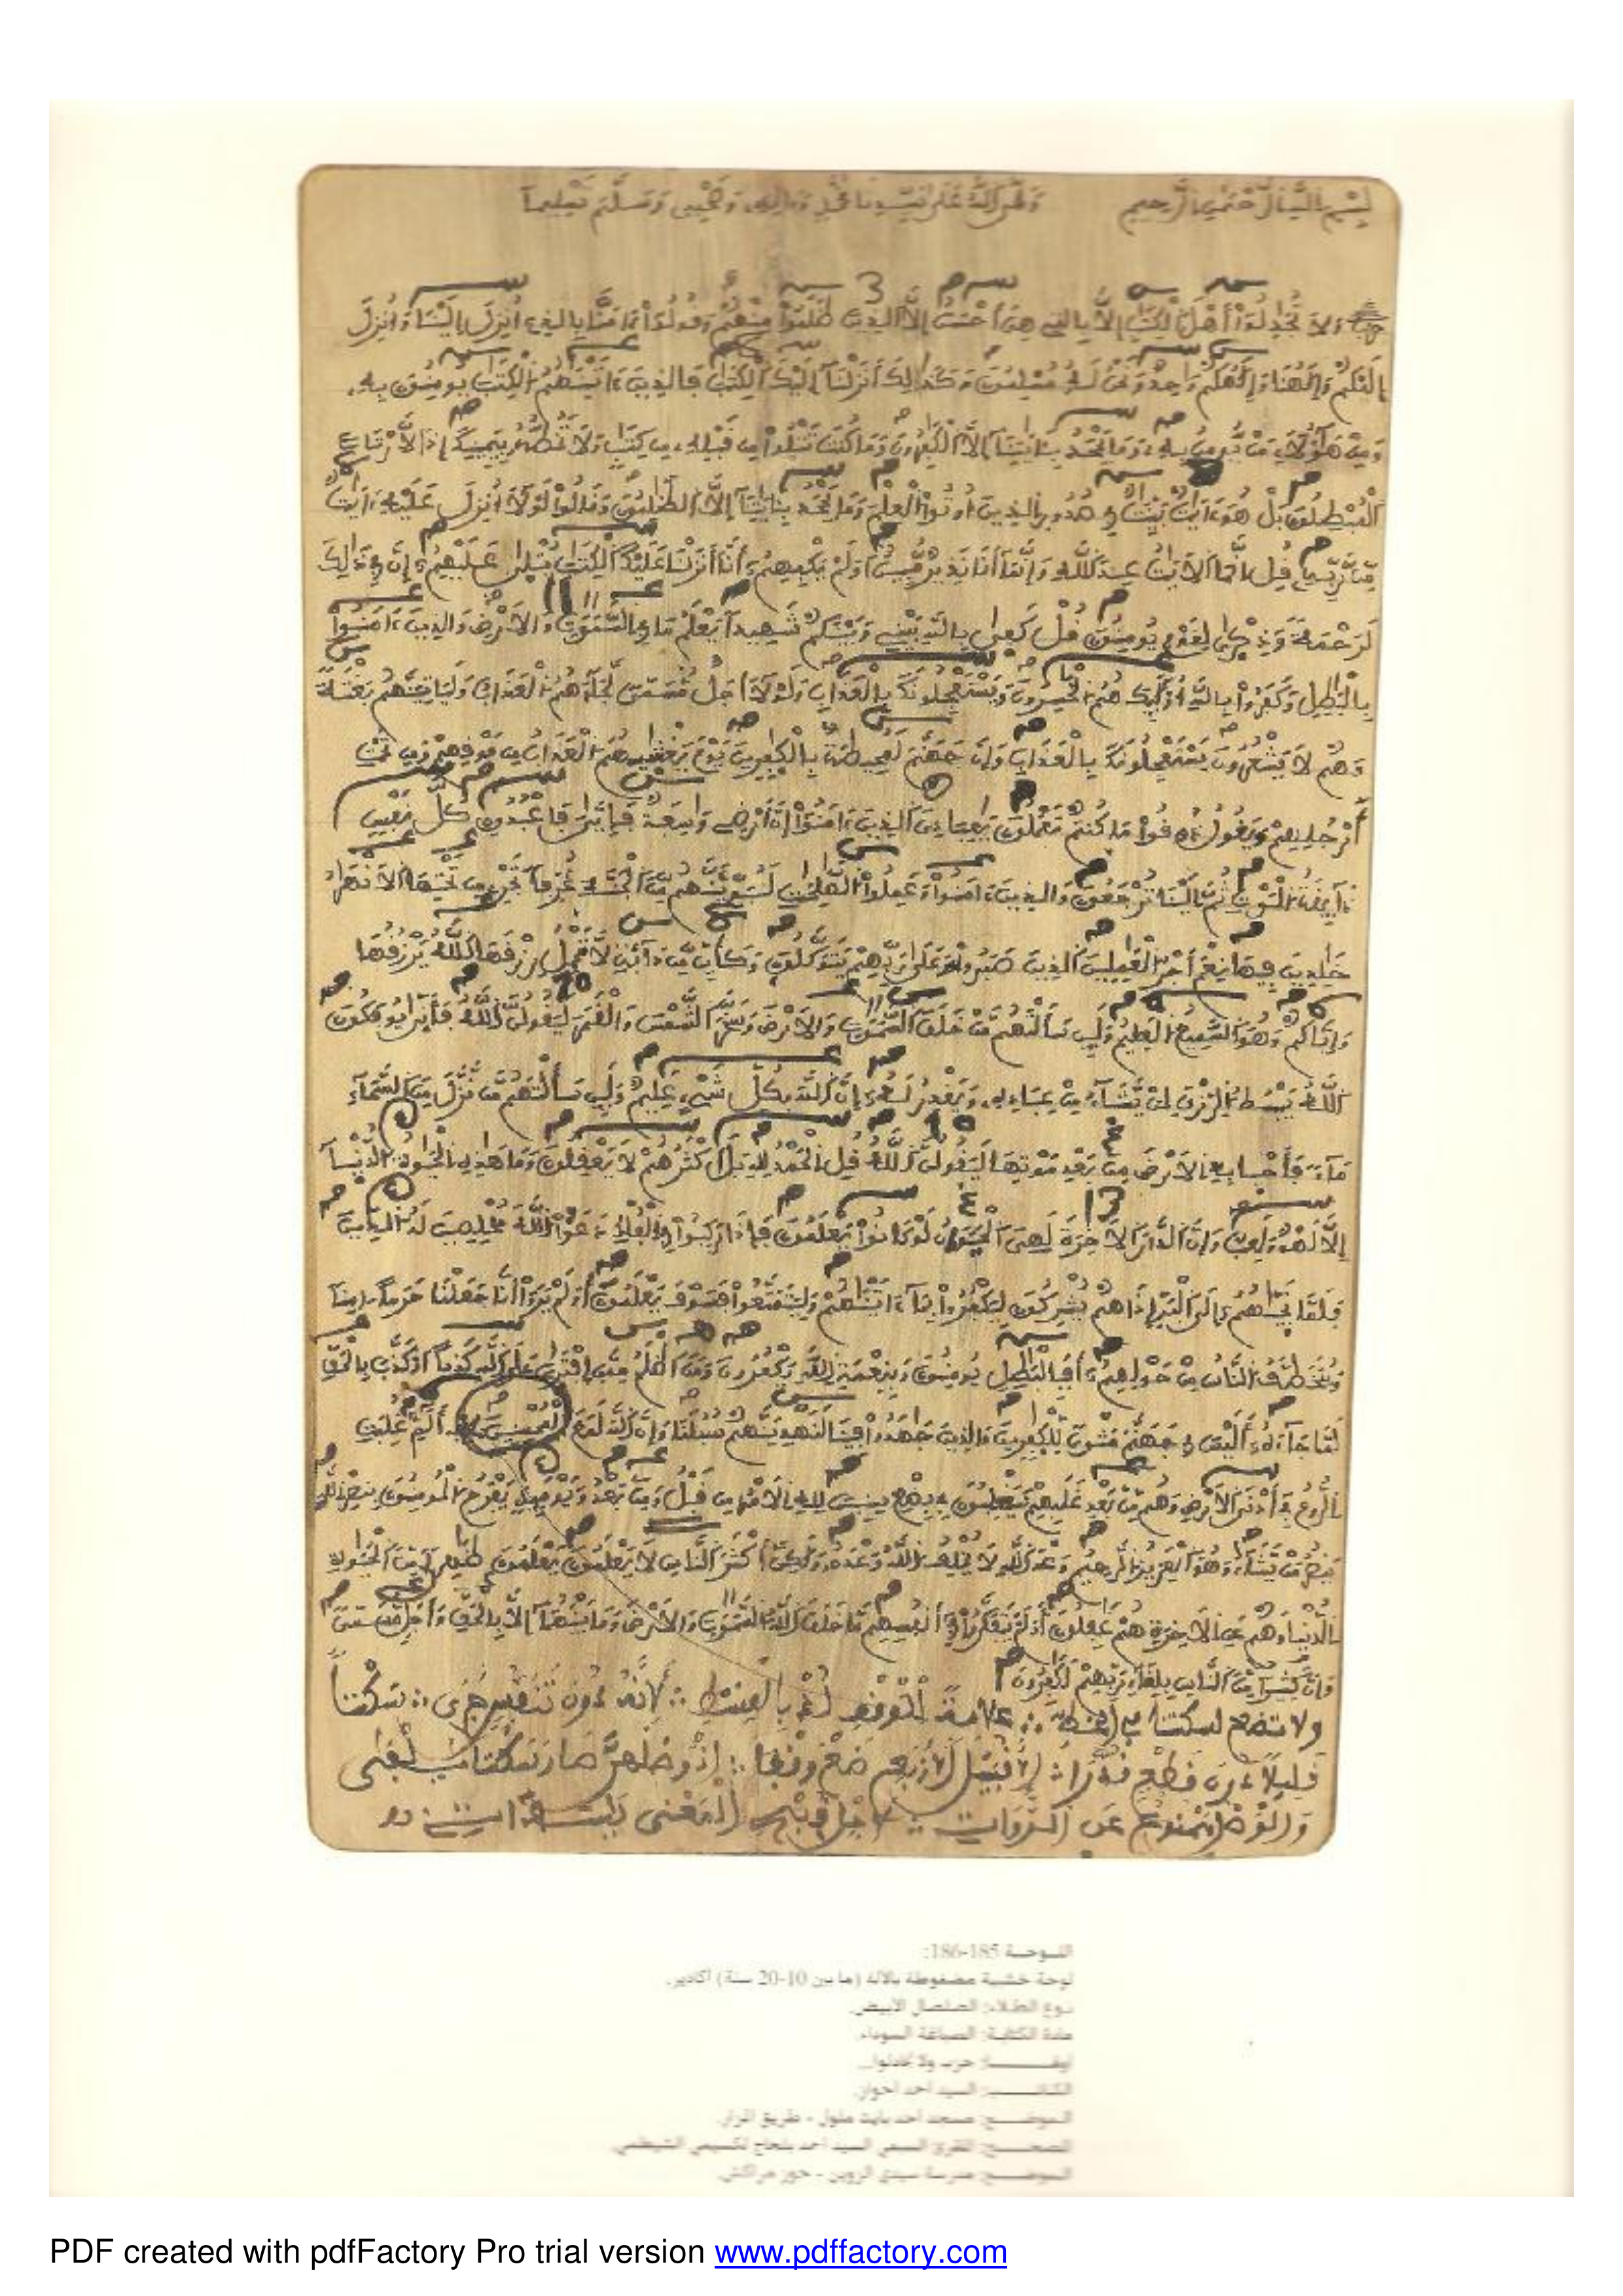 بسم الله الرحمن الرحيم وصلى الله على سيدنا محمد وءاله وصحبه وسلم تسليما
ولا تجدلوا أهل الكتب إلا بالتي هي أحسن إلا الذين ظلموا منهم وقولوا ءامنا بالذي أنزل إلينا وأنزل
إليكم وإلهنا وإلهكم واحد ونحن له مسلمون وكذلك أنزلنا إليك الكتب فالذين ءاتينهم الكتب يومنون به
ومن هؤلاء من يومن به وما يجحد بئايتنا إلا الكفرون وما كنت تتلوا من قبله من كتب ولا تخطه بيمينك إذا لارتاب
المبطلون بل هو ءايت بينت في صدور الذين أوتوا العلم وما يجحد بئايتنا إلا الظلمون وقالوا لولا أنزل عليه ءايت
من ربه قل إنما الايت عند الله وإنما أنا نذير مبين أولم يكفهم أنا أنزلنا عليك الكتب يتلى عليهم إن في ذلك
لرحمة وذكرى لقوم يومنون قل كفى بالله بيني وبينكم شهيدا يعلم ما في السموت والارض والذين ءامنوا
بالبطل وكفروا بالله أولئك هم الخسرون ويستعجلونك بالعذاب ولولا أجل مسمى لجاءهم العذاب ولياتينهم بغتة
وهم لا يشعرون يستعجلونك بالعذاب وإن جهنم لمحيطة بالكفرين يوم يغشيهم العذاب من فوقهم ومن تحت
أرجلهم ويقول ذوقوا ما كنتم تعملون يعبادي الذين ءامنوا إن أرضي وسعة فإيي فاعبدون كل نفس
ذائقة الموت ثم إلينا ترجعون والذين ءامنوا وعملوا الصلحت لنبوئنهم من الجنة غرفا تجري من تحتها الانهر
خلدين فيها نعم أجر العملين الذين صبروا وعلى ربهم يتوكلون وكأين من دابة لا تحمل رزقها الله يرزقها
وإياكم وهو السميع العليم ولئن سألتهم من خلق السموت والارض وسخر الشمس والقمر ليقولن الله فأنى يوفكون
الله يبسط الرزق لمن يشاء من عباده ويقدر له إن الله بكل شيء عليم ولئن سألتهم من نزل من السماء
ماء فأحيا به الارض من بعد موتها ليقولن الله قل الحمد لله بل أكثرهم لا يعقلون وما هذه الحيوة الدنيا
إلا لهو ولعب وإن الدار الاخرة لهي الحيوان لو كانوا يعلمون فإذا ركبوا في الفلك دعوا الله مخلصين له الدين
فلما نجيهم إلى البر إذا هم يشركون ليكفروا بما ءاتينهم وليتمتعوا فسوف يعلمون أولم يروا أنا جعلنا حرما ءامنا
ويتخطف الناس من حولهم أفبالبطل يومنون وبنعمة الله يكفرون ومن أظلم ممن افترى على الله كذبا أو كذب بالحق
لما جاءه أليس في جهنم مثوى للكفرين والذين جهدوا فينا لنهدينهم سبلنا وإن الله لمع المحسنين ألم غلبت
الروم في أدنى الارض وهم من بعد غلبهم سيغلبون في بضع سنين لله الامر من قبل ومن بعد ويومئذ يفرح المومنون بنصر الله
ينصر من يشاء وهو العزيز الرحيم وعد الله لا يخلف الله وعده ولكن أكثر الناس لا يعلمون يعلمون ظهرا من الحيوة
الدنيا وهم عن الاخرة هم غفلون أولم يتفكروا في أنفسهم ما خلق الله السموت والارض وما بينهما إلا بالحق وأجل مسمى
وإن كثيرا من الناس بلقاء ربهم لكفرون
ولا تضع لسكتنا في الخط علامة الوقف لهم بالضبط لأنه دون تنفس جرى سكتنا
قليلا دون قطع
والوقف ممنوع عن الروات المعنى
اللوحة 185-186:
لوحة خشبية مضغوطة بالآلة (ما بين 10-20 سنة) أكادير.
نوع الطلاء: الصلصال الأبيض.
مادة الكتابة: الصباغة السوداء.
حزب ولا تجادلوا...
الكاتب: السيد أحمد احوار.
الموضع: مسجد أحمد بايت ملول - طريق المزار.
المصحح: المقرئ السبعي السيد أحمد بلحاج لكسيمي الشيظمي.
الموضع: مدرسة سيدي الزوين - حوز مراكش.
PDF created with pdfFactory Pro trial version www.pdffactory.com